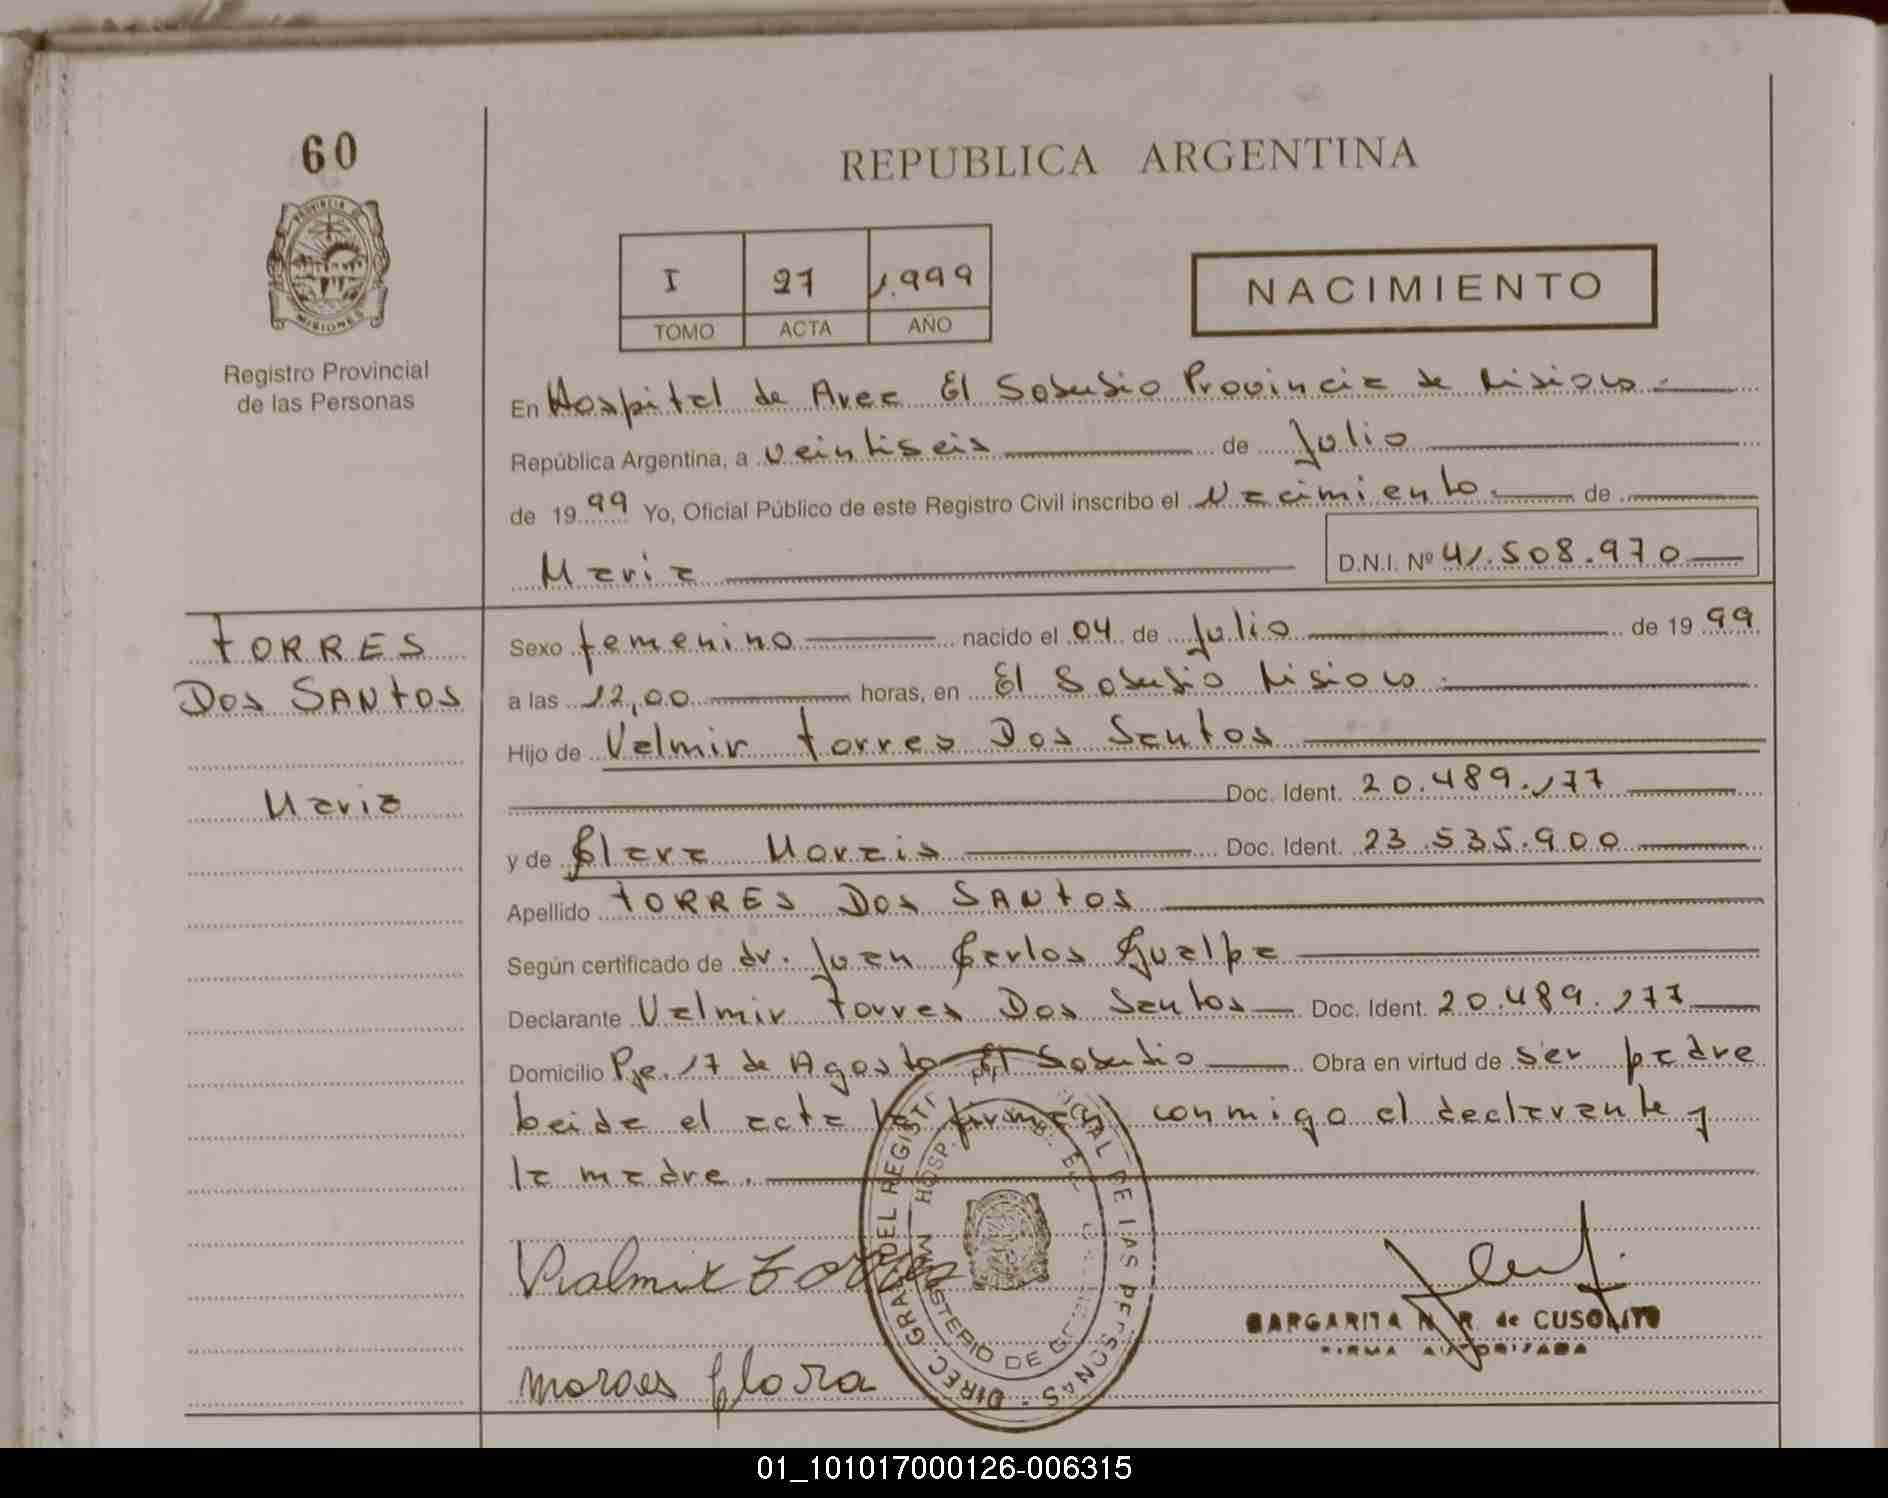 60
REPUBLICA ARGENTINA
PROVINCIA DE
MISIONES
Registro Provincial
de las Personas
I 27 1.999
TOMO ACTA AÑO
NACIMIENTO
En Hospital de Area El Soberbio Provincia de Misiones.
República Argentina, a veintiseis de Julio
de 1999 Yo, Oficial Público de este Registro Civil inscribo el Nacimiento. de
Maria D.N.I. Nº 41.508.970
TORRES
DOS SANTOS
Maria
Sexo femenino nacido el 04 de Julio de 1999
a las 12,00 horas, en El Soberbio Misiones.
Hijo de Valmir Torres Dos Santos
Doc. Ident. 20.489.177
y de Clara Morais Doc. Ident. 23.535.900
Apellido TORRES DOS SANTOS
Según certificado de dr. Juan Carlos Gualpa
Declarante Valmir Torres Dos Santos Doc. Ident. 20.489.177
Domicilio Pje. 17 de Agosto El Soberbio Obra en virtud de ser padre
Leida el acta la firman conmigo el declarante y
la madre.
Valmir Torres
DIREC. GRAL. DEL REGISTRO PROVINCIAL DE LAS PERSONAS
MINISTERIO DE GOBIERNO
HOSP.
MARGARITA N. R. de CUSOLITO
FIRMA AUTORIZADA
moraes Clara
01_101017000126-006315